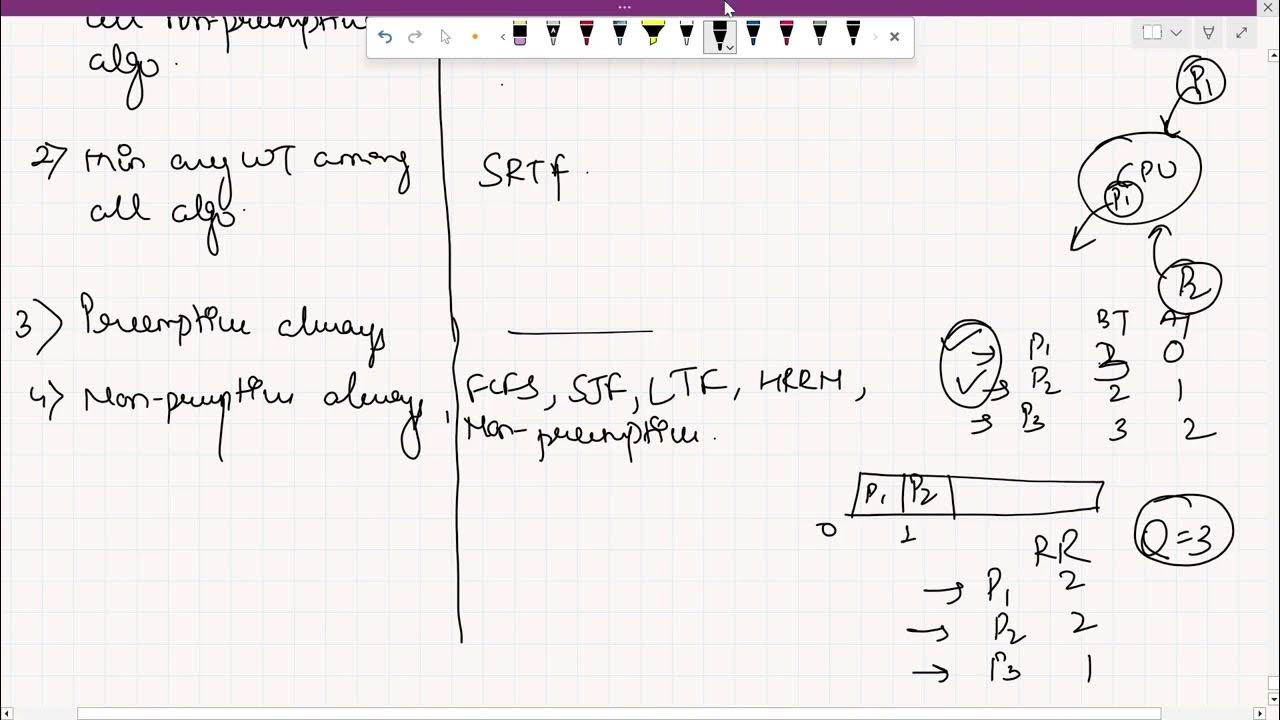 all non-preemptive
algo.
2) Min avg WT among
all algo.
SRTF.
3) Preemptive always
4) Non-preemptive always,
FCFS, SJF, LTF, HRRN,
Non-preemptive.
P1
CPU
P1
P2
BT AT
P1 0
P2 2 1
P3 3 2
P1 P2
0 1
Q=3
RR
P1 2
P2 2
P3 1